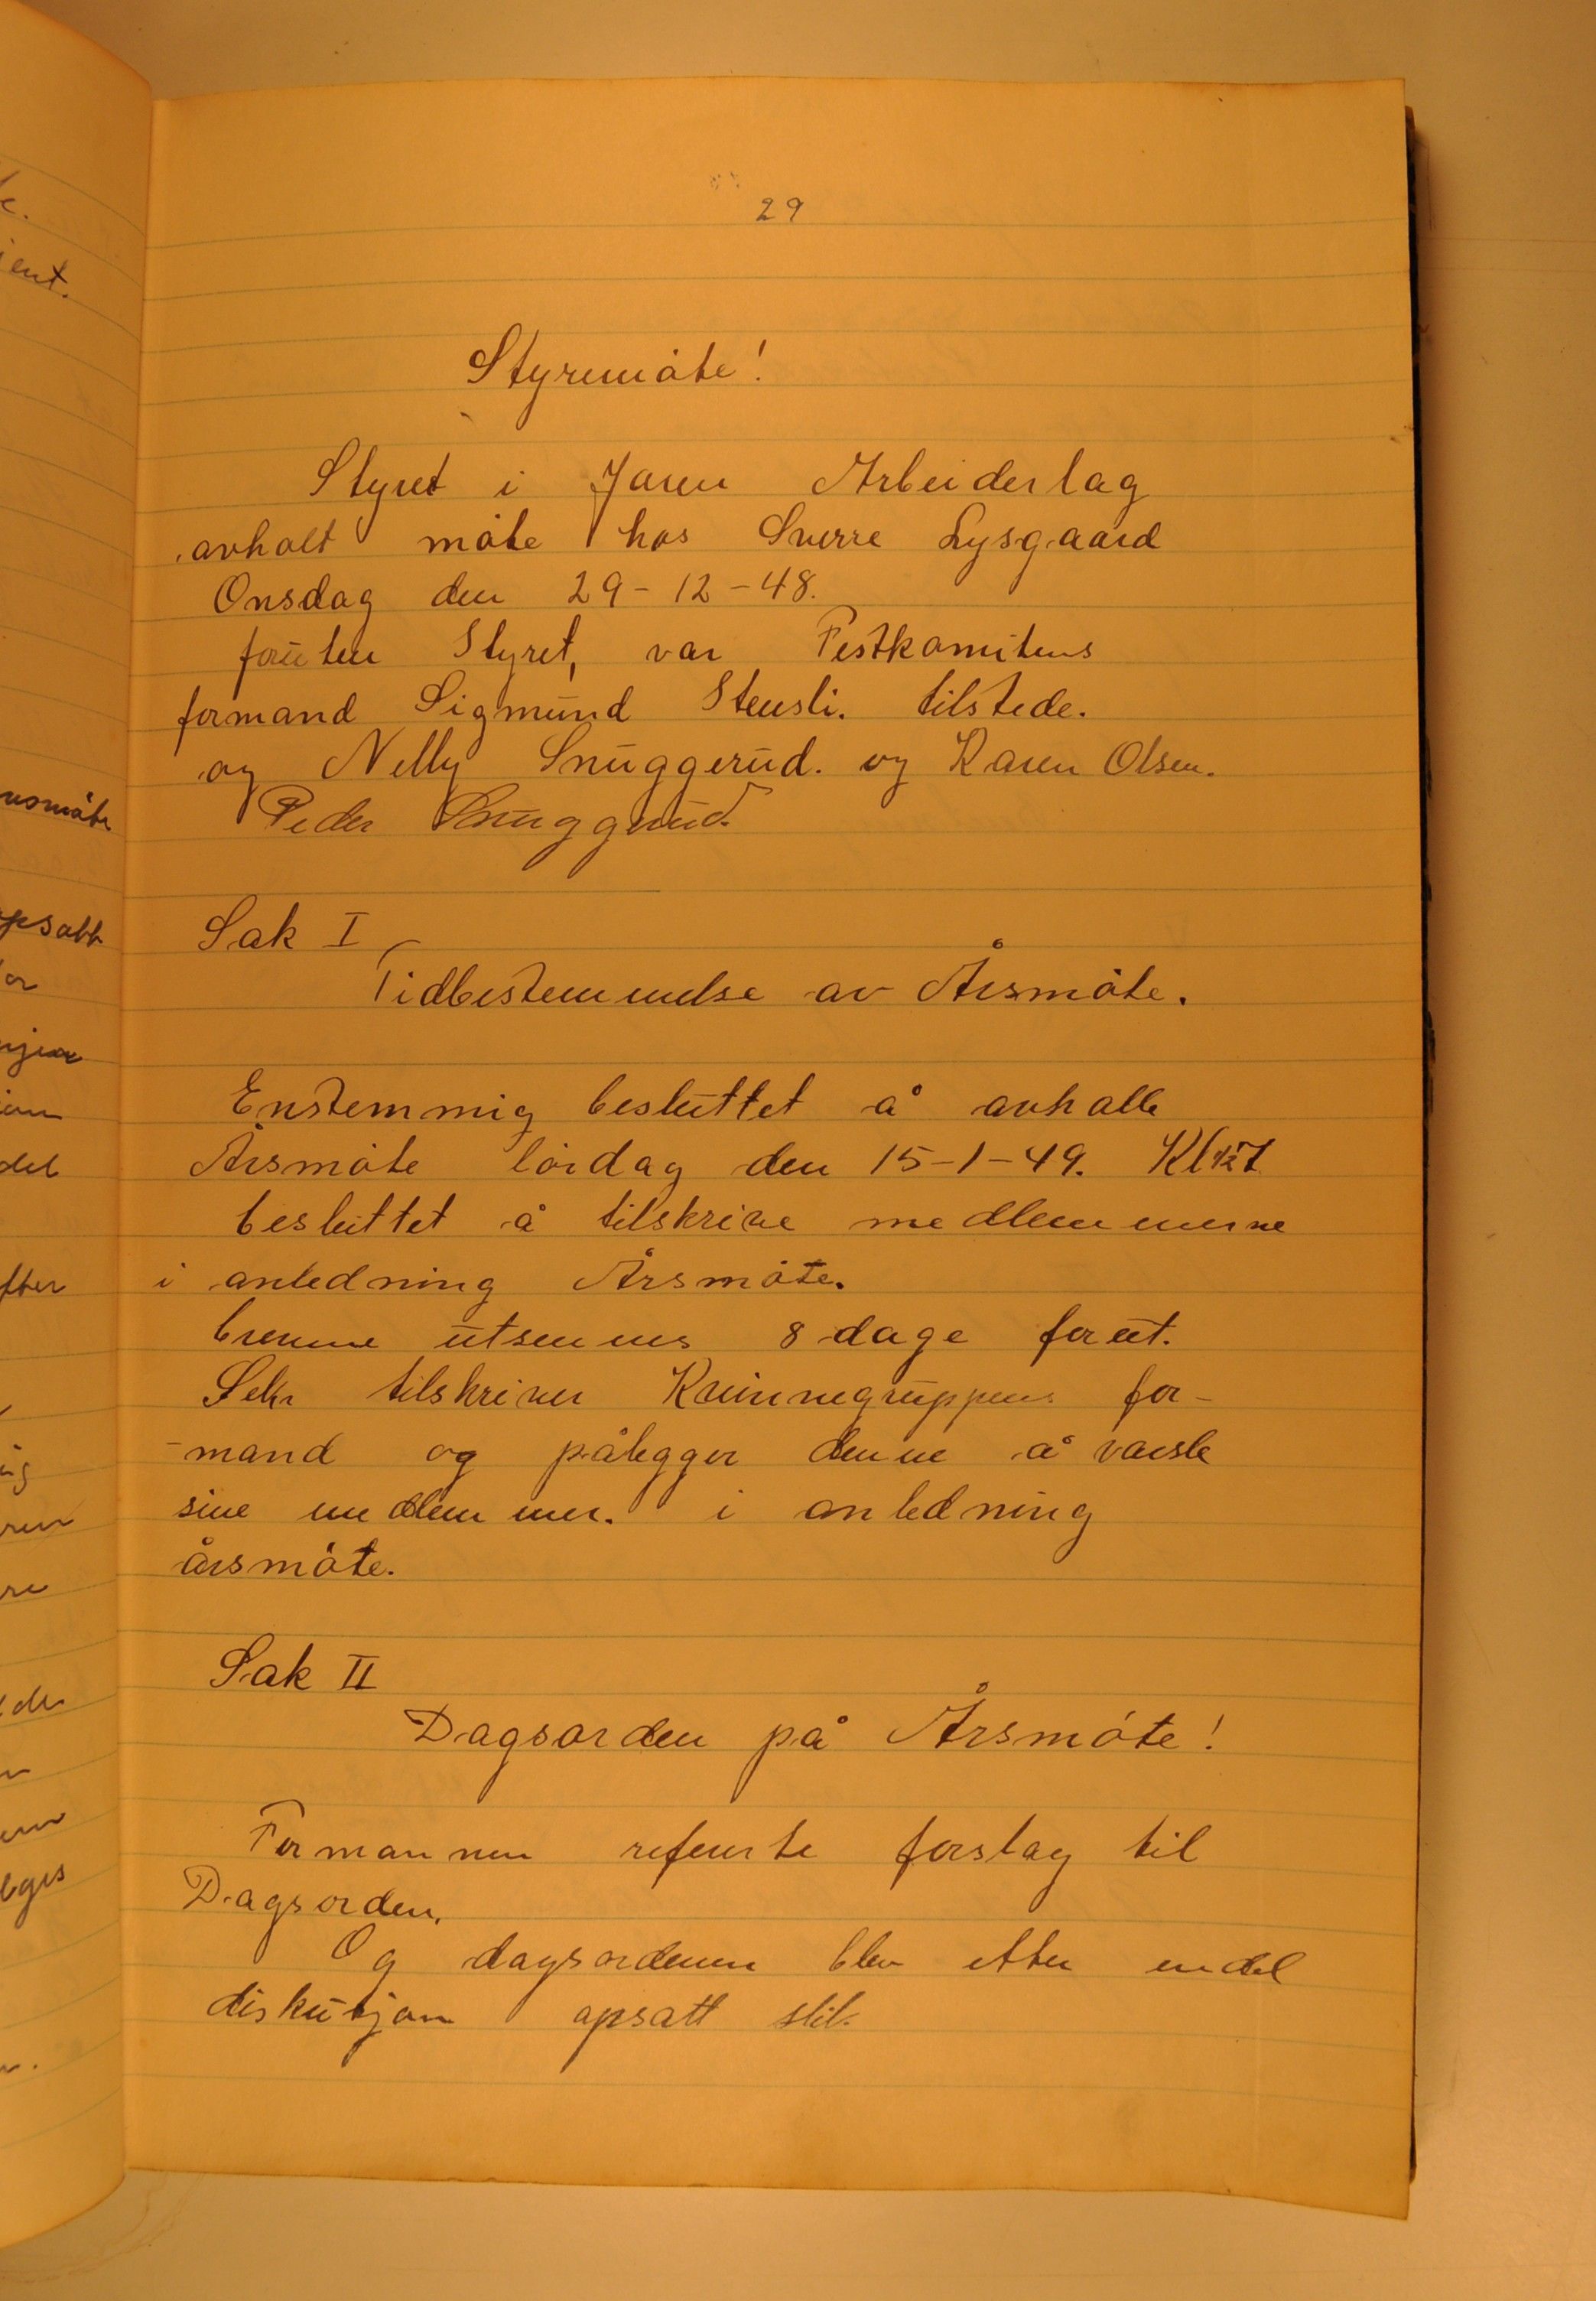 29
Styremöte!
Styret i Jaren Arbeiderlag
avholt möte hos Sverre Lysgaard
Onsdag den 29-12-48.
foruten Styret, var Festkomitens
formand Sigmund Stensli. tilstede.
og Nelly Snuggerud. og Karen Olsen.
Peder Snuggerud.
Sak I
Tidbestemmelse av Årsmöte.
Enstemmig besluttet å avholle
Årsmöte lördag den 15-1-49. Kl 1/2 7
besluttet å tilskrive medlemmerne
i anledning Årsmöte.
brevene utsennes 8 dage forut.
Sekr tilskriver Kvinnegruppens for-
-mand og pålegger denne å varsle
sine medlemmer. i anledning
årsmöte.
Sak II
Dagsorden på Årsmöte!
Formannen refererte forslag til
Dagsorden.
Og dagsordenen blev etter endel
diskusjon opsatt slik.